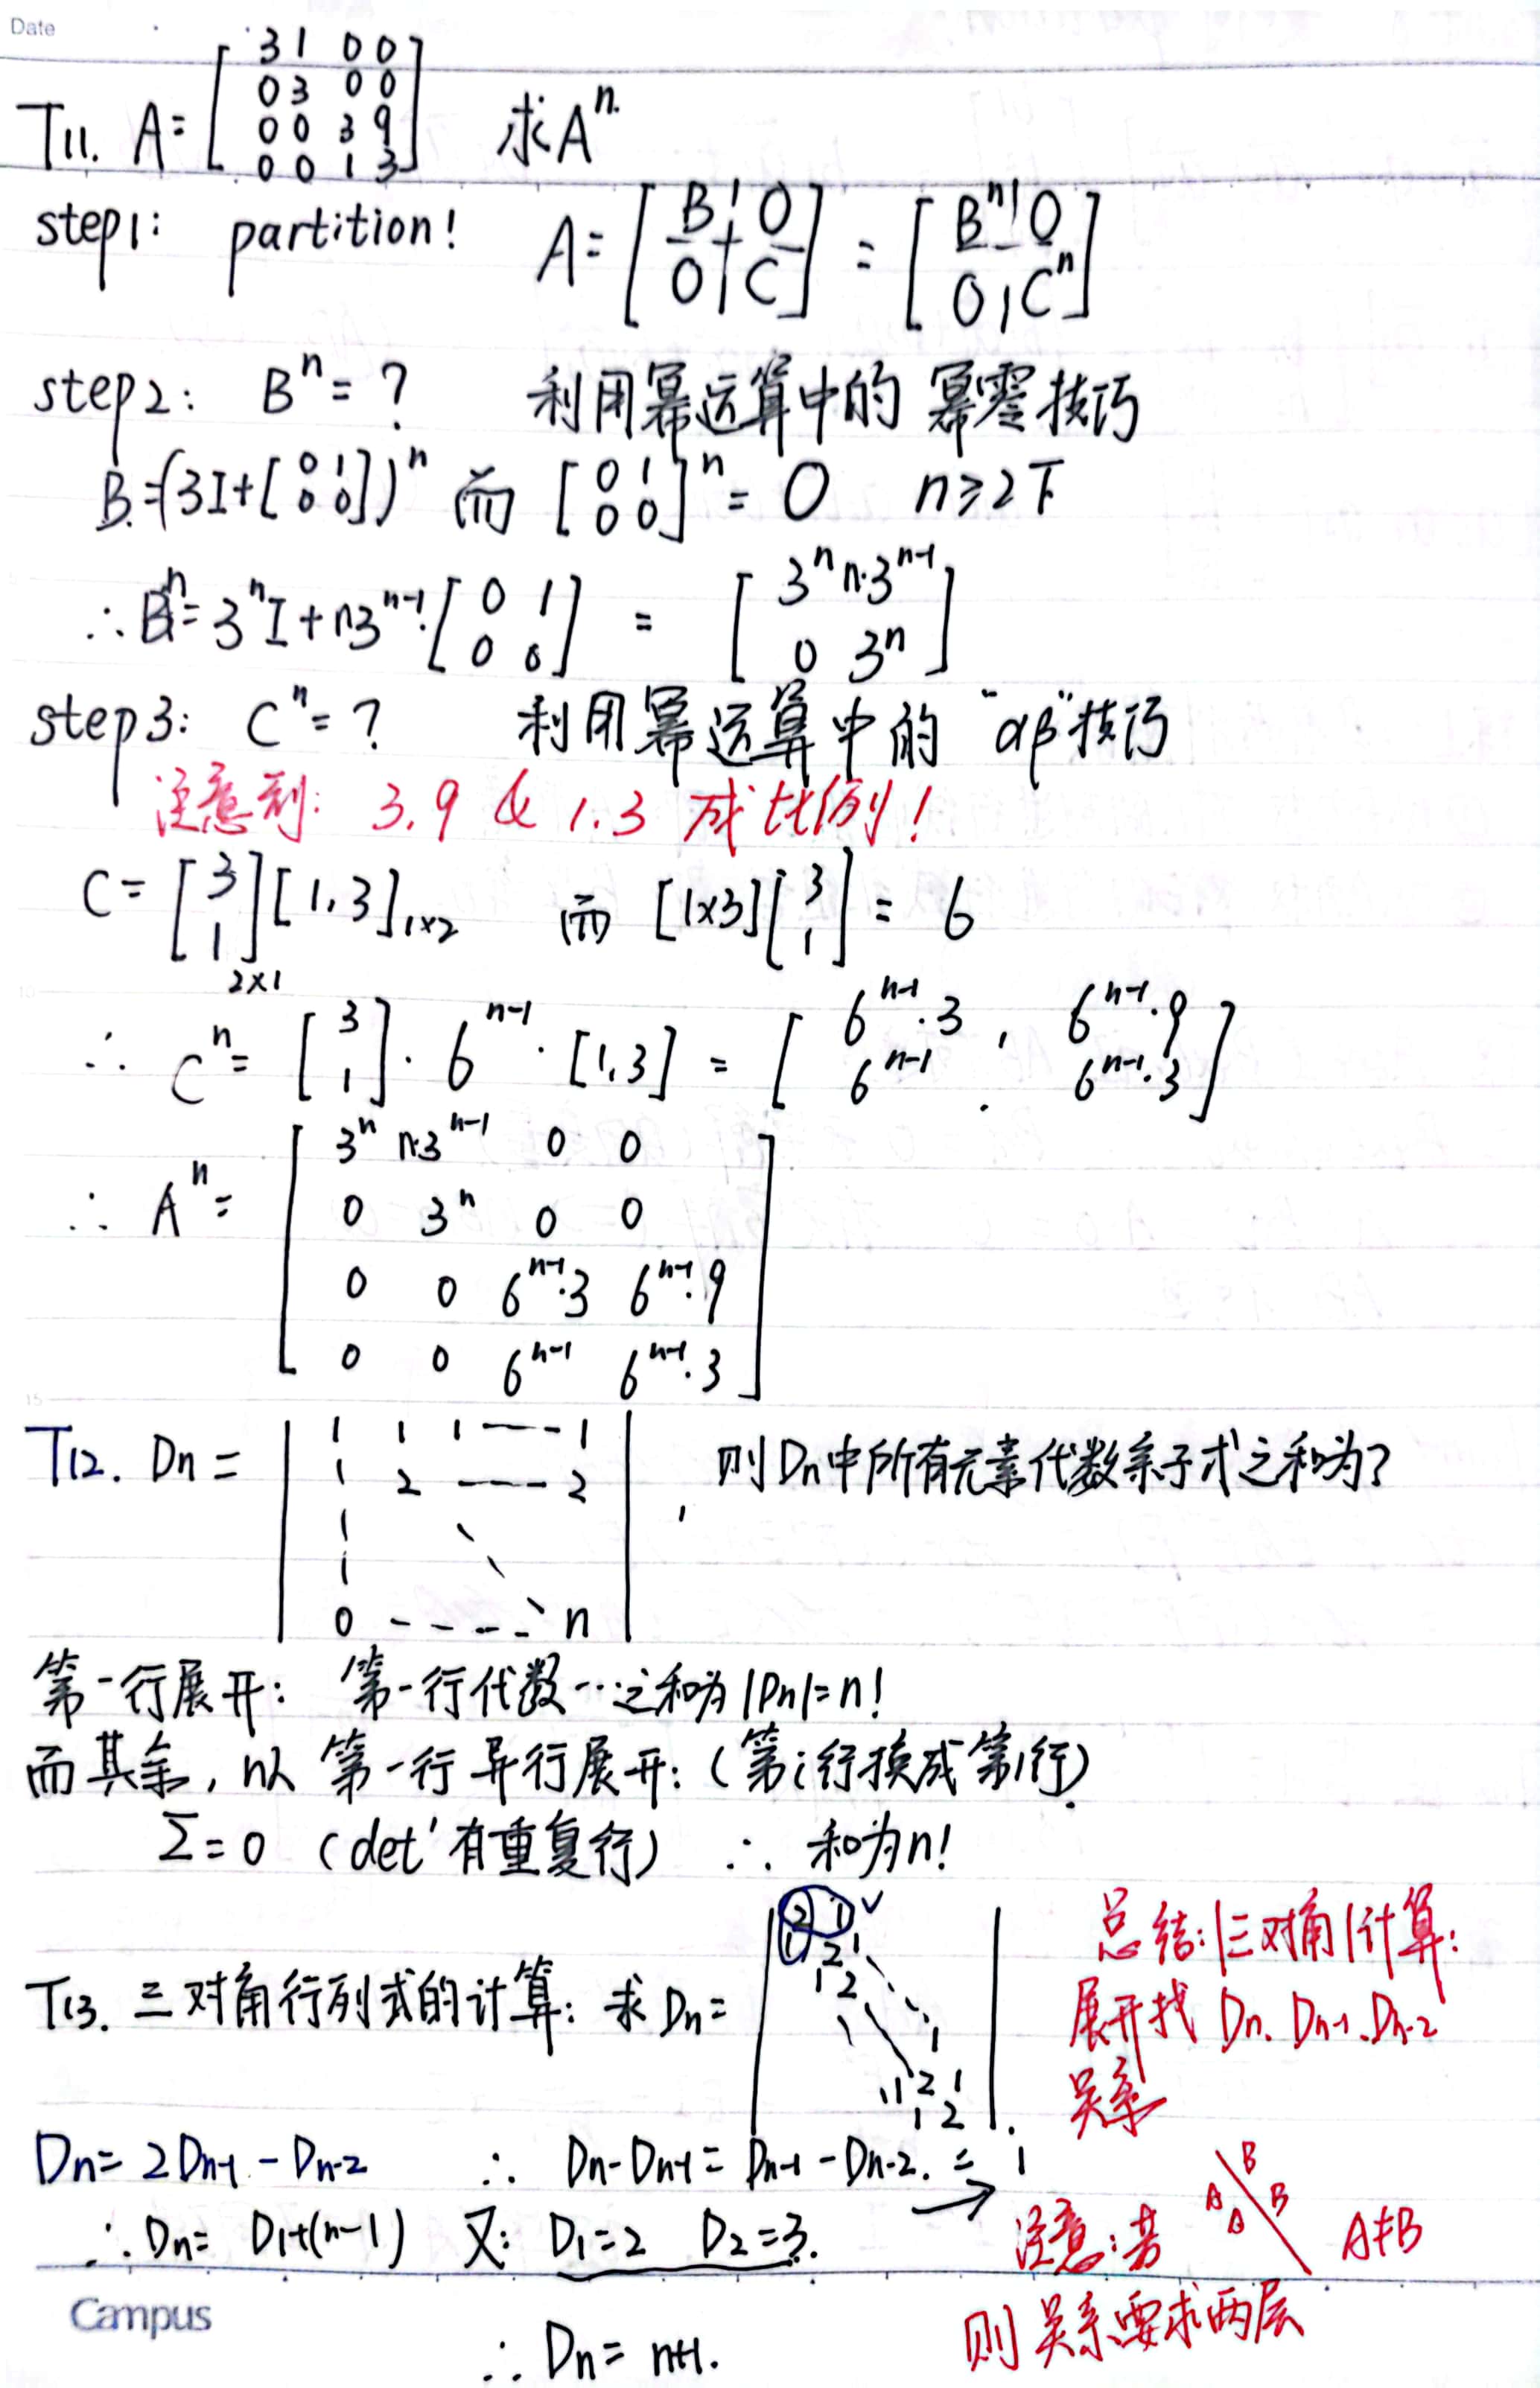 Date
T11. A= [ 3 1 0 0 ; 0 3 0 0 ; 0 0 3 9 ; 0 0 1 3 ] 求Aⁿ.
step1: partition! A= [ B O ; O C ] = [ Bⁿ O ; O Cⁿ ]
step2: Bⁿ= ? 利用幂运算中的 幂零技巧
B.=(3I+[ 0 1 ; 0 0 ])ⁿ 而 [ 0 1 ; 0 0 ]ⁿ= O n≥2下
∴ Bⁿ= 3ⁿI + n3ⁿ⁻¹·[ 0 1 ; 0 0 ] = [ 3ⁿ n·3ⁿ⁻¹ ; 0 3ⁿ ]
step3: Cⁿ= ? 利用幂运算中的 "αβ"技巧
注意到: 3.9 & 1.3 成比例!
C= [ 3 ; 1 ]2×1 [1,3]1×2 而 [1×3][ 3 ; 1 ] = 6
∴ Cⁿ= [ 3 ; 1 ] · 6ⁿ⁻¹ · [1,3] = [ 6ⁿ⁻¹·3 , 6ⁿ⁻¹·9 ; 6ⁿ⁻¹ . 6ⁿ⁻¹·3 ]
∴ Aⁿ= [ 3ⁿ n·3ⁿ⁻¹ 0 0 ; 0 3ⁿ 0 0 ; 0 0 6ⁿ⁻¹·3 6ⁿ⁻¹·9 ; 0 0 6ⁿ⁻¹ 6ⁿ⁻¹·3 ]
T12. Dn = | 1 1 1 --- 1 ; 1 2 --- 2 ; 0 ---- n | , 则Dn中所有元素代数余子式之和为?
第一行展开: 第一行代数…之和为|Dn|=n!
而其余, 以 第一行 异行展开: (第i行换成第1行).
Σ=0 (det' 有重复行) ∴ 和为n!
T13. 三对角行列式的计算: 求 Dn= | 2 1 ; 1 2 1 ; 1 2 ; 1 ; 1 2 1 ; 1 2 | .
总结:|三对角|计算:
展开找 Dn. Dn-1.Dn-2
关系
Dn= 2Dn-1 - Dn-2 ∴ Dn-Dn-1= Dn-1 - Dn-2. = 1
∴ Dn= D1+(n-1) 又: D1=2 D2=3.
注意:若 A A \ B B A≠B
则 关系要求两层
∴ Dn= n+1.
Campus